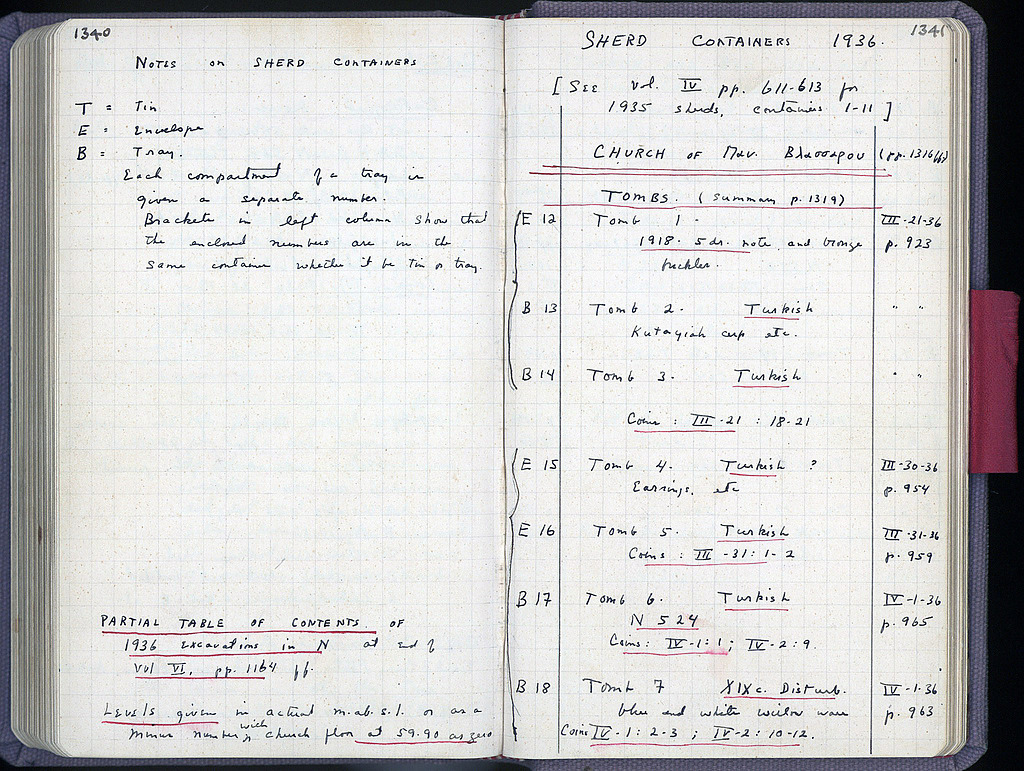 1340
NOTES on SHERD CONTAINERS
T = Tin
E = Envelope
B = Tray.
Each compartment of a tray is
given a separate number.
Brackets in left column show that
the enclosed numbers are in the
same container whether it be tin or tray.
PARTIAL TABLE OF CONTENTS OF
1936 Excavations in N at end of
Vol VI, pp. 1164 ff.
Levels given in actual m.ab.s.l. or as a
minus number with church floor at 59.90 as zero
1341
SHERD CONTAINERS 1936.
[SEE vol. IV pp. 611-613 for
1935 sherds, containers 1-11]
CHURCH OF Παν. Βλασσαρου (pp. 1316 ff)
TOMBS. (summary p. 1319)
E 12 Tomb 1 - III-21-36
1918. 5 dr. note, and bronze p. 923
buckles.
B 13 Tomb 2. Turkish " "
Kutayiah cup etc.
B 14 Tomb 3. Turkish " "
Coins : III-21 : 18-21
E 15 Tomb 4. Turkish ? III-30-36
Earrings, etc p. 954
E 16 Tomb 5. Turkish III-31-36
Coins : III-31: 1-2 p. 959
B 17 Tomb 6. Turkish IV-1-36
N 524 p. 965
Coins: IV-1: 1 ; IV-2: 9.
B 18 Tomb 7 XIX c. Disturb. IV-1-36
blue and white willow ware p. 963
Coins IV-1: 2-3 ; IV-2: 10-12.